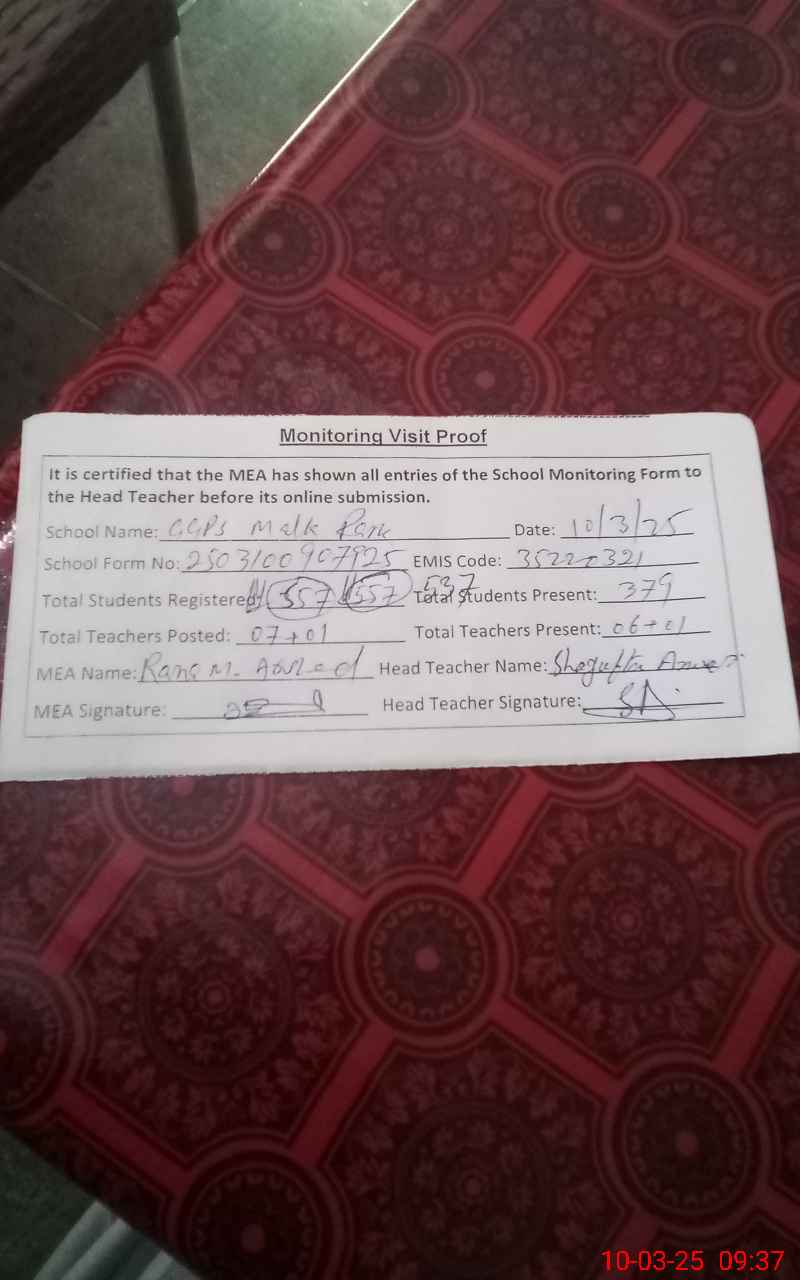 Monitoring Visit Proof
It is certified that the MEA has shown all entries of the School Monitoring Form to
the Head Teacher before its online submission.
School Name: GGPS Malk Park Date: 10/3/25
School Form No: 2503100907925 EMIS Code: 35220321
Total Students Registered: 557 557 537 Total Students Present: 379
Total Teachers Posted: 07+01 Total Teachers Present: 06+01
MEA Name: Rana M. Head Teacher Name: Shagufta
MEA Signature: Head Teacher Signature:
10-03-25 09:37